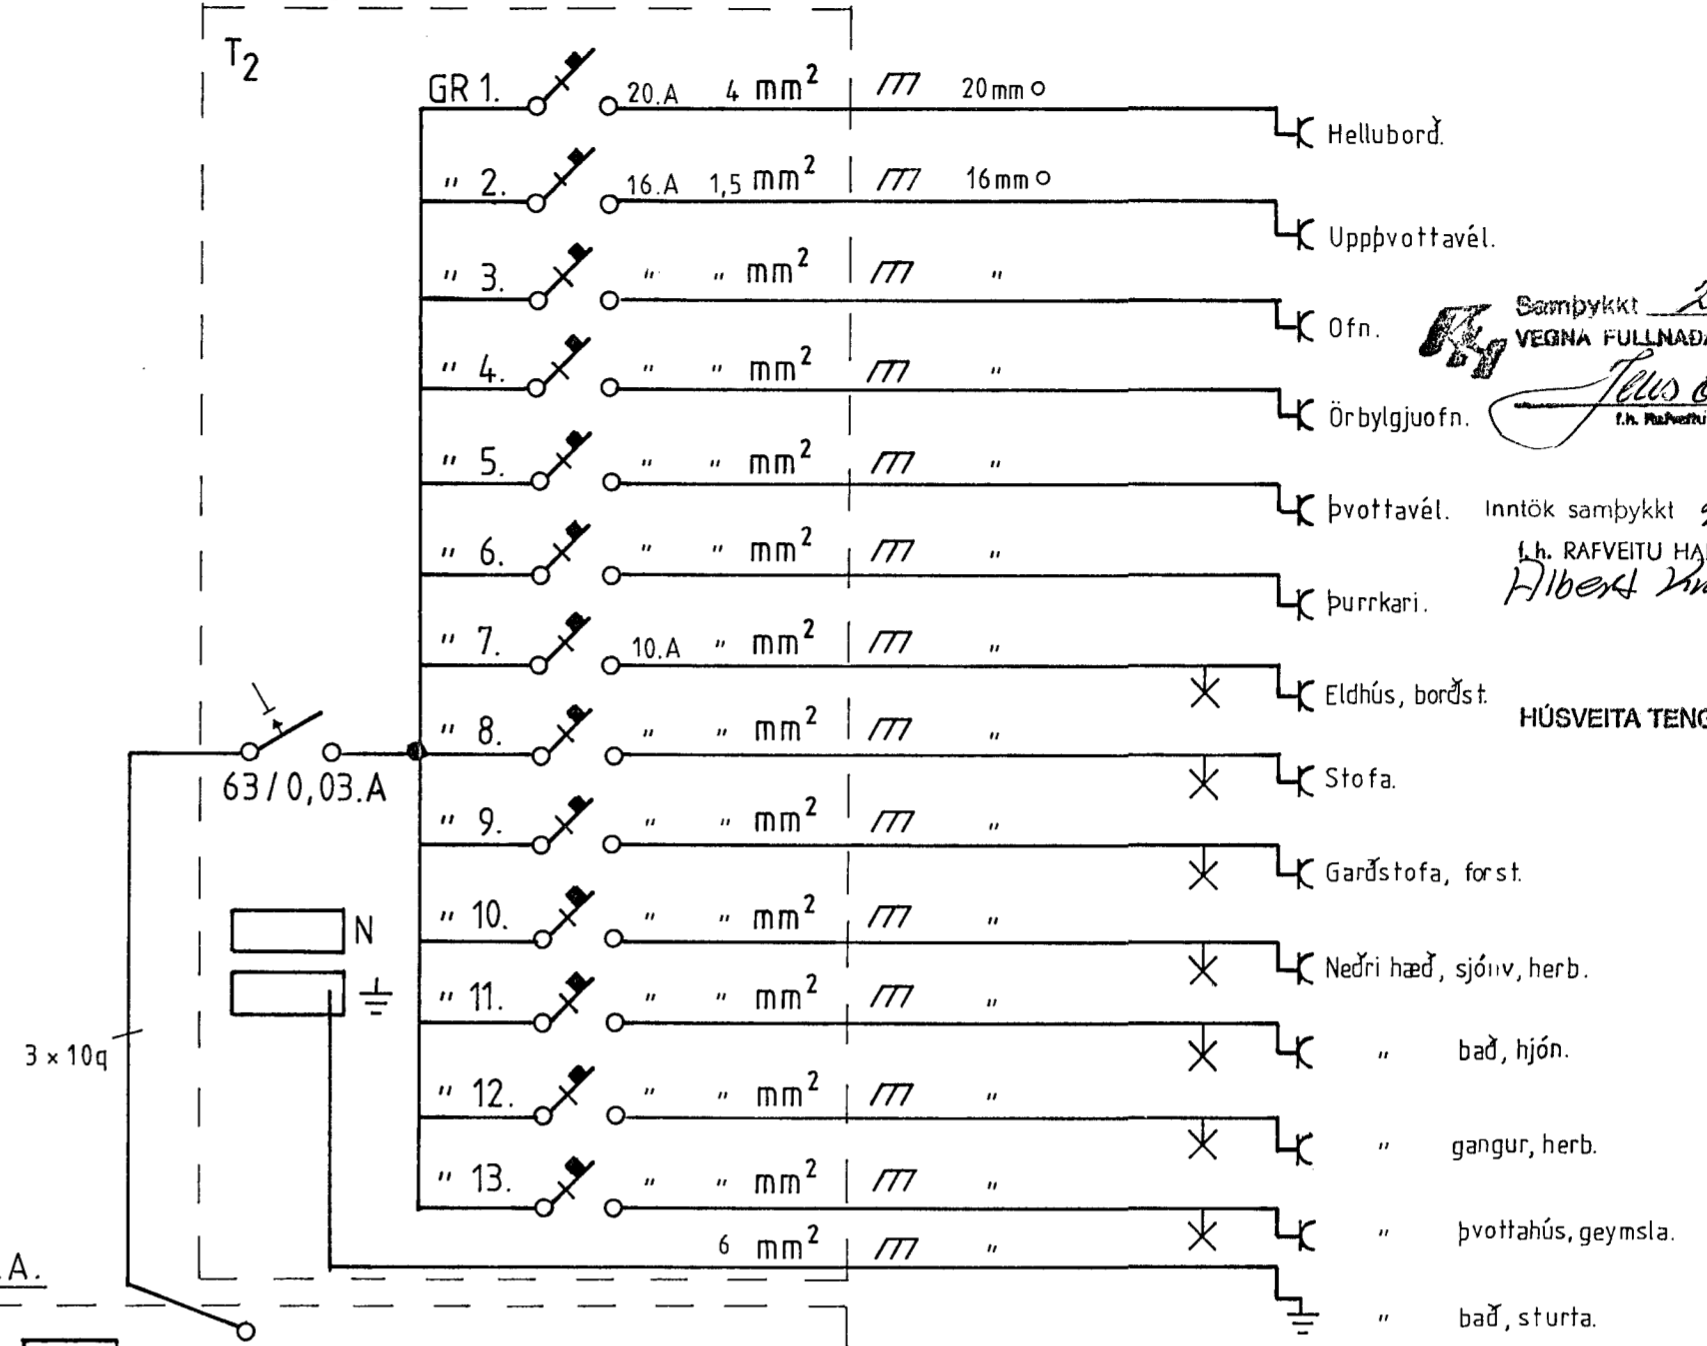 T2
GR 1. 20.A 4 mm² 20mm○ Helluborð.
" 2. 16.A 1,5 mm² 16mm○ Uppþvottavél.
" 3. " " mm² " Ofn.
" 4. " " mm² " Örbylgjuofn.
" 5. " " mm² " Þvottavél.
" 6. " " mm² " Þurrkari.
" 7. 10.A " mm² " Eldhús, borðst.
" 8. " " mm² " Stofa.
" 9. " " mm² " Garðstofa, forst.
" 10. " " mm² " Neðri hæð, sjónv, herb.
" 11. " " mm² " " bað, hjón.
" 12. " " mm² " " gangur, herb.
" 13. " " mm² " " Þvottahús, geymsla.
6 mm² " " bað, sturta.
63/0,03.A
N
3 x 10q
.A.
Samþykkt
VEGNA
f.h.
Inntök samþykkt
f.h. RAFVEITU HA
Albert
HÚSVEITA TENG